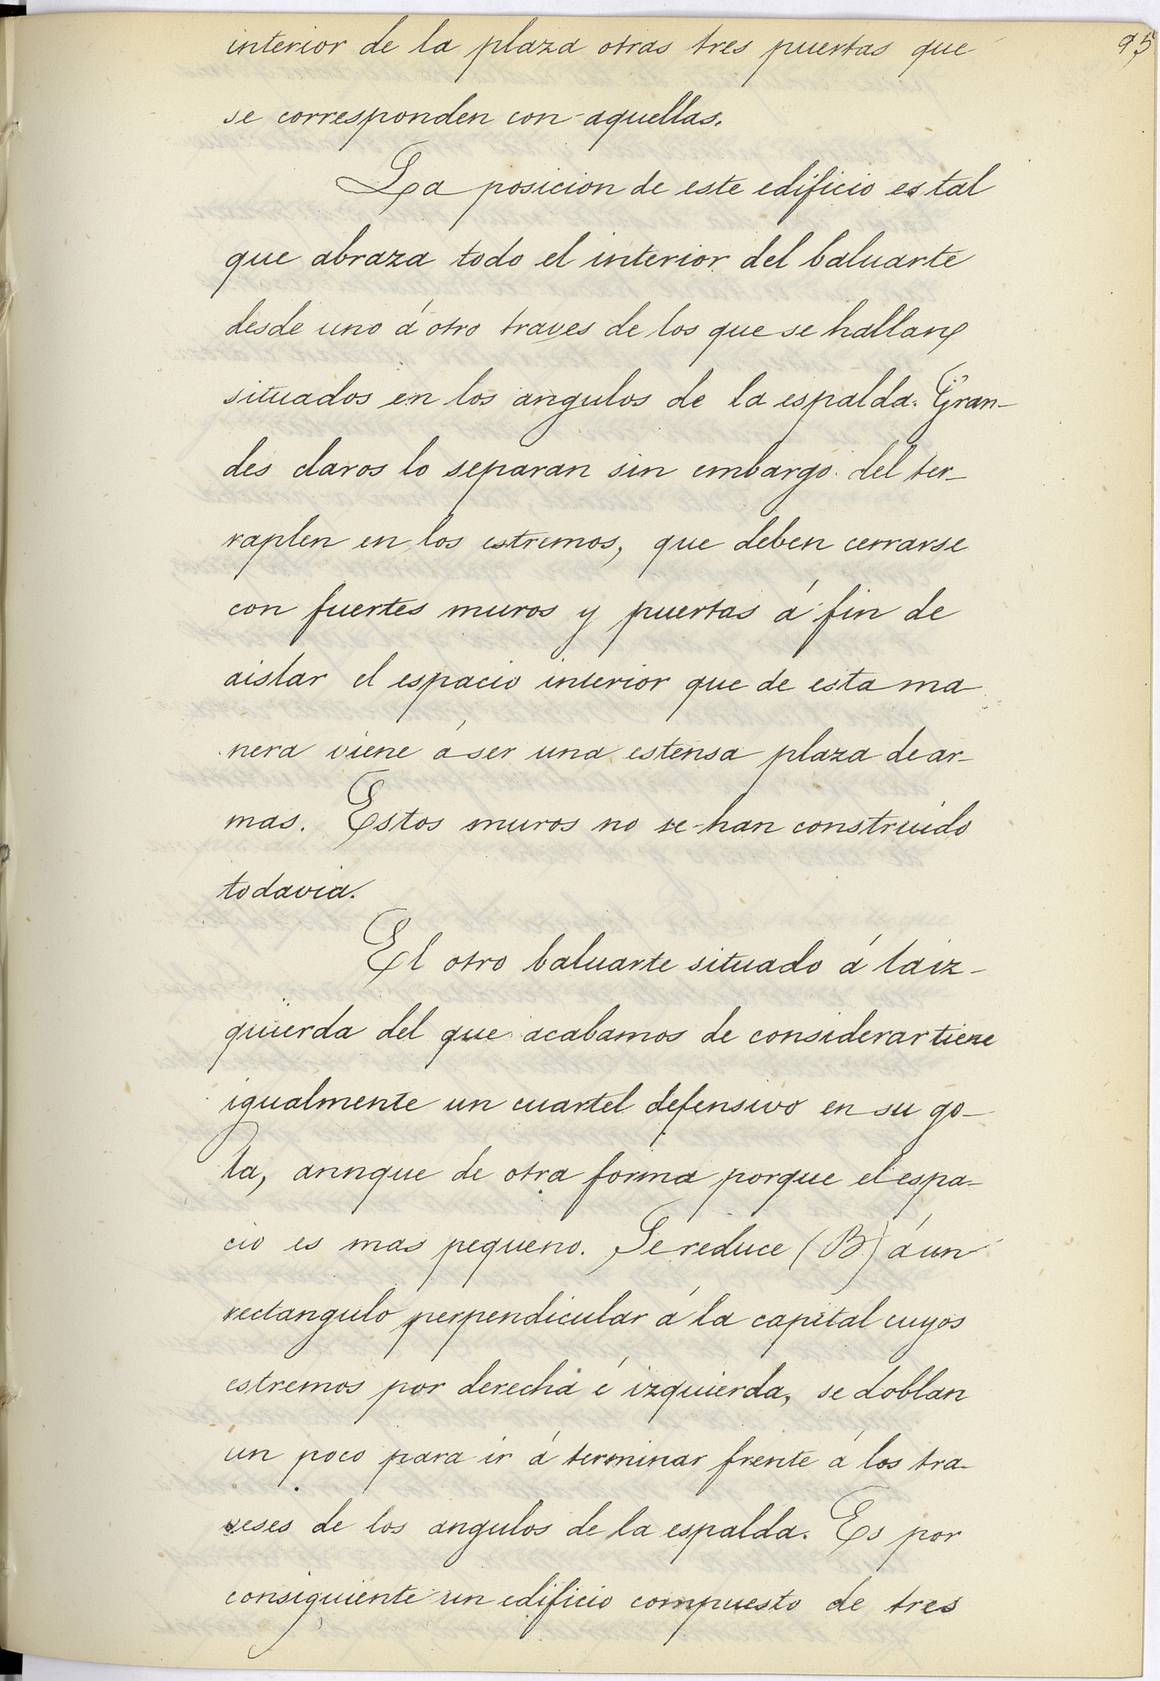 95
interior de la plaza otras tres puertas que
se corresponden con aquellas.
La posicion de este edificio es tal
que abraza todo el interior del baluarte
desde uno á otro traves de los que se hallan
situados en los angulos de la espalda. Gran-
des claros lo separan sin embargo del ter-
raplen en los estremos, que deben cerrarse
con fuertes muros y puertas á fin de
aislar el espacio interior que de esta ma
nera viene á ser una estensa plaza de ar-
mas. Estos muros no se han construido
todavia.
El otro baluarte situado á la iz-
quierda del que acabamos de considerar tiene
igualmente un cuartel defensivo en su go-
la, annque de otra forma porque el espa-
cio es mas pequeno. Se reduce (B) á un
rectangulo perpendicular á la capital cuyos
estremos por derecha é izquierda, se doblan
un poco para ir á terminar frente á los tra-
veses de los angulos de la espalda. Es por
consiguiente un edificio compuesto de tres